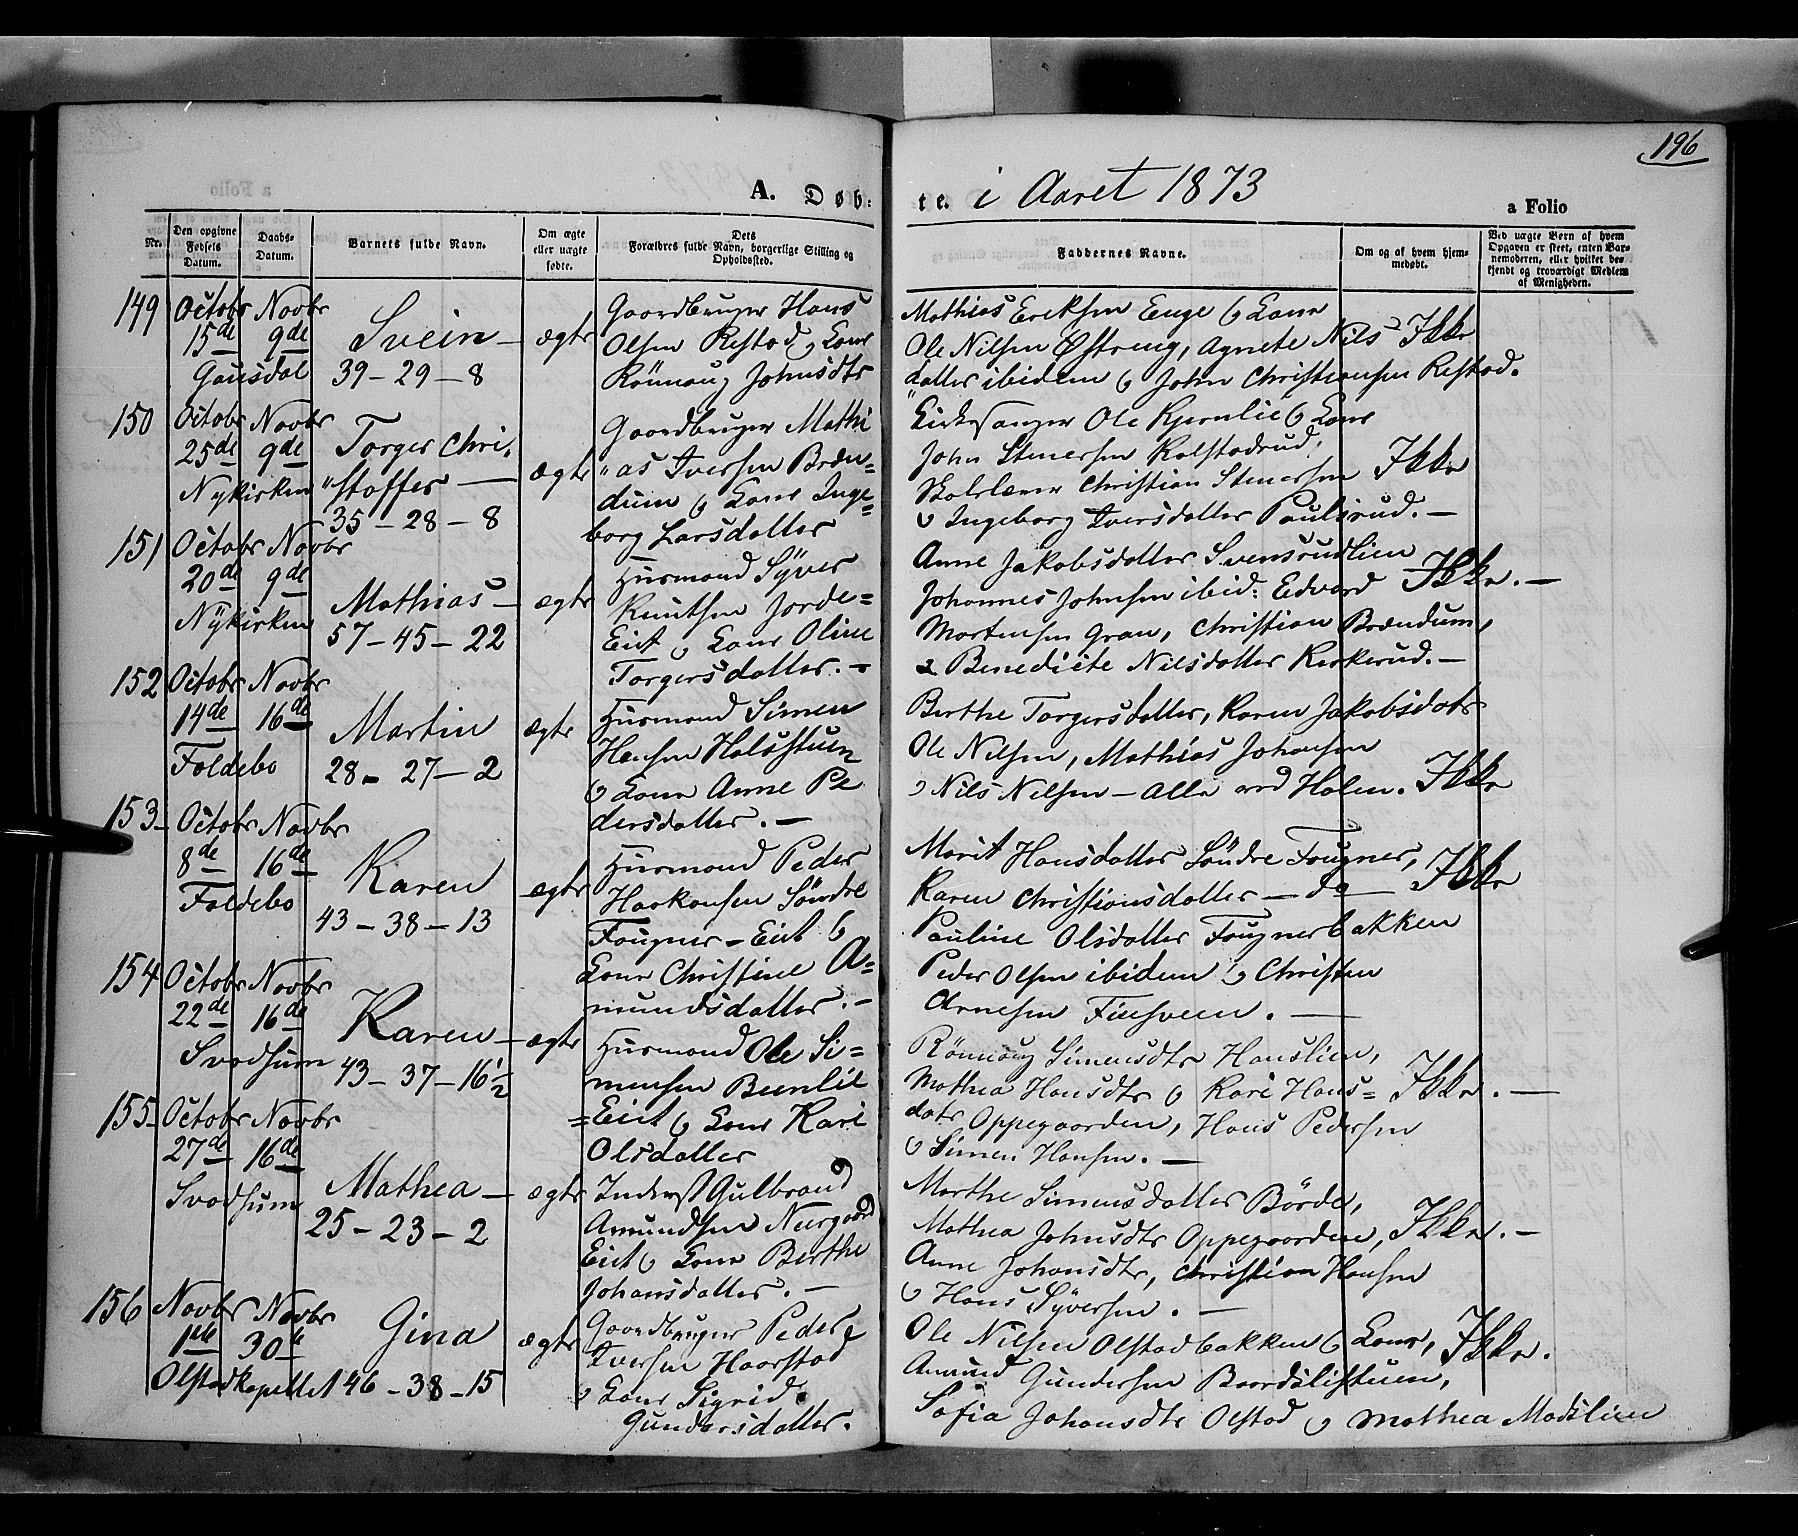 196
A. Døb:
te. i Aaret 1873
a Folio
Nr.
Den opgivne Fødsels Datum.
Daabs-Datum.
Barnets fulde Navn.
Om ægte eller uægte fødte.
Dets Forældres fulde Navn, borgerlige Stilling og Opholdssted.
Faddernes Navne.
Om og af hvem hjemmedøbt.
Ved uægte Børn af hvem Opgaven er skeet, enten Barnemoderen, eller hvilket bekjendt og troværdigt Medlem af Menigheden.
149 Octobr Novbr
15de 9de
Gausdal
Svein
39-29-8
ægte
Gaardbruger Hans
Olsen Restad og Kone
Rønnoug Johnsdtr
Mathias Eriksen Enge og Kone
Ole Nilsen Østreng, Agnete Nils Ikke
datter ibidem og John Christiansen Restad.
150 Octobr Novbr
25de 9de
Nykirken
Torger Chri,
"stoffer
35-28-8
ægte
Gaardbruger Mathi
"as Iversen Bræn-
dum og Kone Inge=
borg Larsdatter
Kirkesanger Ole Kjernlie og Kone
John Stenersen Kalstadrud,
Skolelærer Christian Stenersen Ikke
og Ingeborg Iversdatter Paulsrud.
151 Octobr Novbr
20de 9de
Nykirken
Mathias
57-45-22
ægte
Husmand Syver
Knutsen Jorde=
Eiet og Kone Oline
Torgersdatter.
Anne Jakobsdatter Svensrudlien
Johannes Johnsen ibid: Edvard Ikke.
Mortensen Gran, Christian Brændum,
& Benedicte Nilsdatter Kerkerud.
152 Octobr Novbr
14de 16de
Foldebo
Martin
28-27-2
ægte
Husmand Simen
Hansen Holsstuen
og Kone Anne Pe
dersdatter.
Berthe Torgersdatter, Karen Jakobsdatr
Ole Nilsen, Mathias Johansen
og Nils Nilsen - Alle ved Holen. Ikke
153 Octobr Novbr
8de 16de
Foldebo
Karen
43-38-13
ægte
Husmand Peder
Haakonsen Søndre
Fougner-Eiet og
Kone Christine A=
mundsdatter.
Marit Hansdatter Søndre Fougner,
Karen Christiansdatter - do - Ikke
Pauline Olsdatter Fougnerbakken
Peder Olsen ibidem og Christen
Arnesen Finsveen.
154 Octobr Novbr
22de 16de
Svodsum
Karen
43-37-16½
ægte
Husmand Ole Si=
mensen Beenlie
=Eiet og Kone Kari
Olsdatter
Rønnoug Simensdtr Hauslien,
Mathea Hansdtr og Kari Hans= Ikke.
datr Oppegaarden, Hans Pedersen
og Simen Hansen.
155 Octobr Novbr
27de 16de
Svodsum
Mathea
25-23-2
ægte
Inderst Gulbrand
Amundsen Neergaard
Eiet og Kone Berthe
Johansdatter.
Marthe Simensdatter Børde,
Mathea Johnsdtr Oppegaarden, Ikke.
Anne Johansdtr, Christian Hansen
og Hans Syversen.
156 Novbr Novbr
1ste 30te
Olstadkapellet
Gina
46-38-15
ægte
Gaardbruger Peder
Iversen Haarstad
og Kone Sigrid
Gundersdatter.
Ole Nilsen Olstadbakken og Kone, Ikke.
Amund Gundersen Baardslistuen,
Sofia Johansdtr Olstad og Mathea Madslien